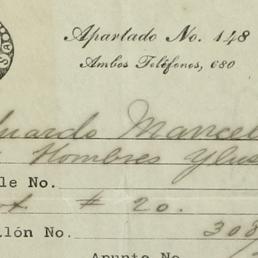 Apartado No. 148
Ambos Teléfonos, 680
uardo Mancel
Hombres Ylus
le No.
# 20.
llón No. 308
Apunte No.